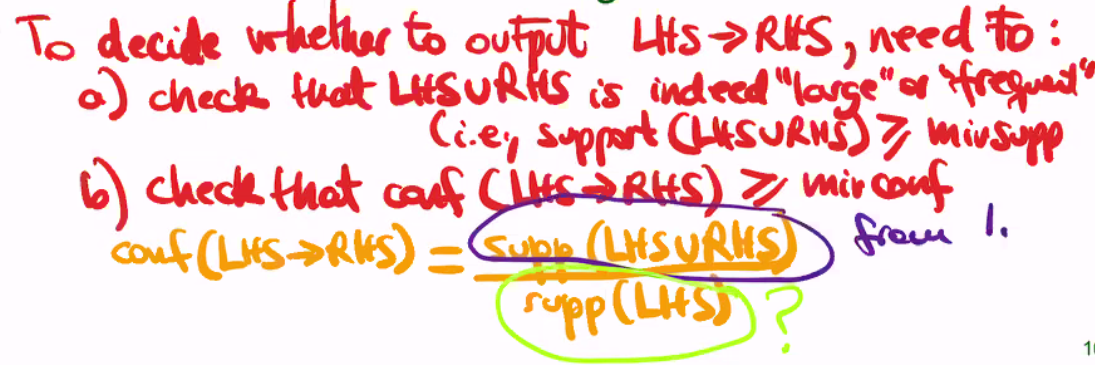 To decide whether to output LHS→RHS, need to:
a) check that LHSURHS is indeed "large" or "frequent"
(i.e., support (LHSURHS) ⩾ minsupp
b) check that conf (LHS→RHS) ⩾ minconf
conf(LHS→RHS) = supp(LHSURHS) from 1.
supp(LHS) ?
10